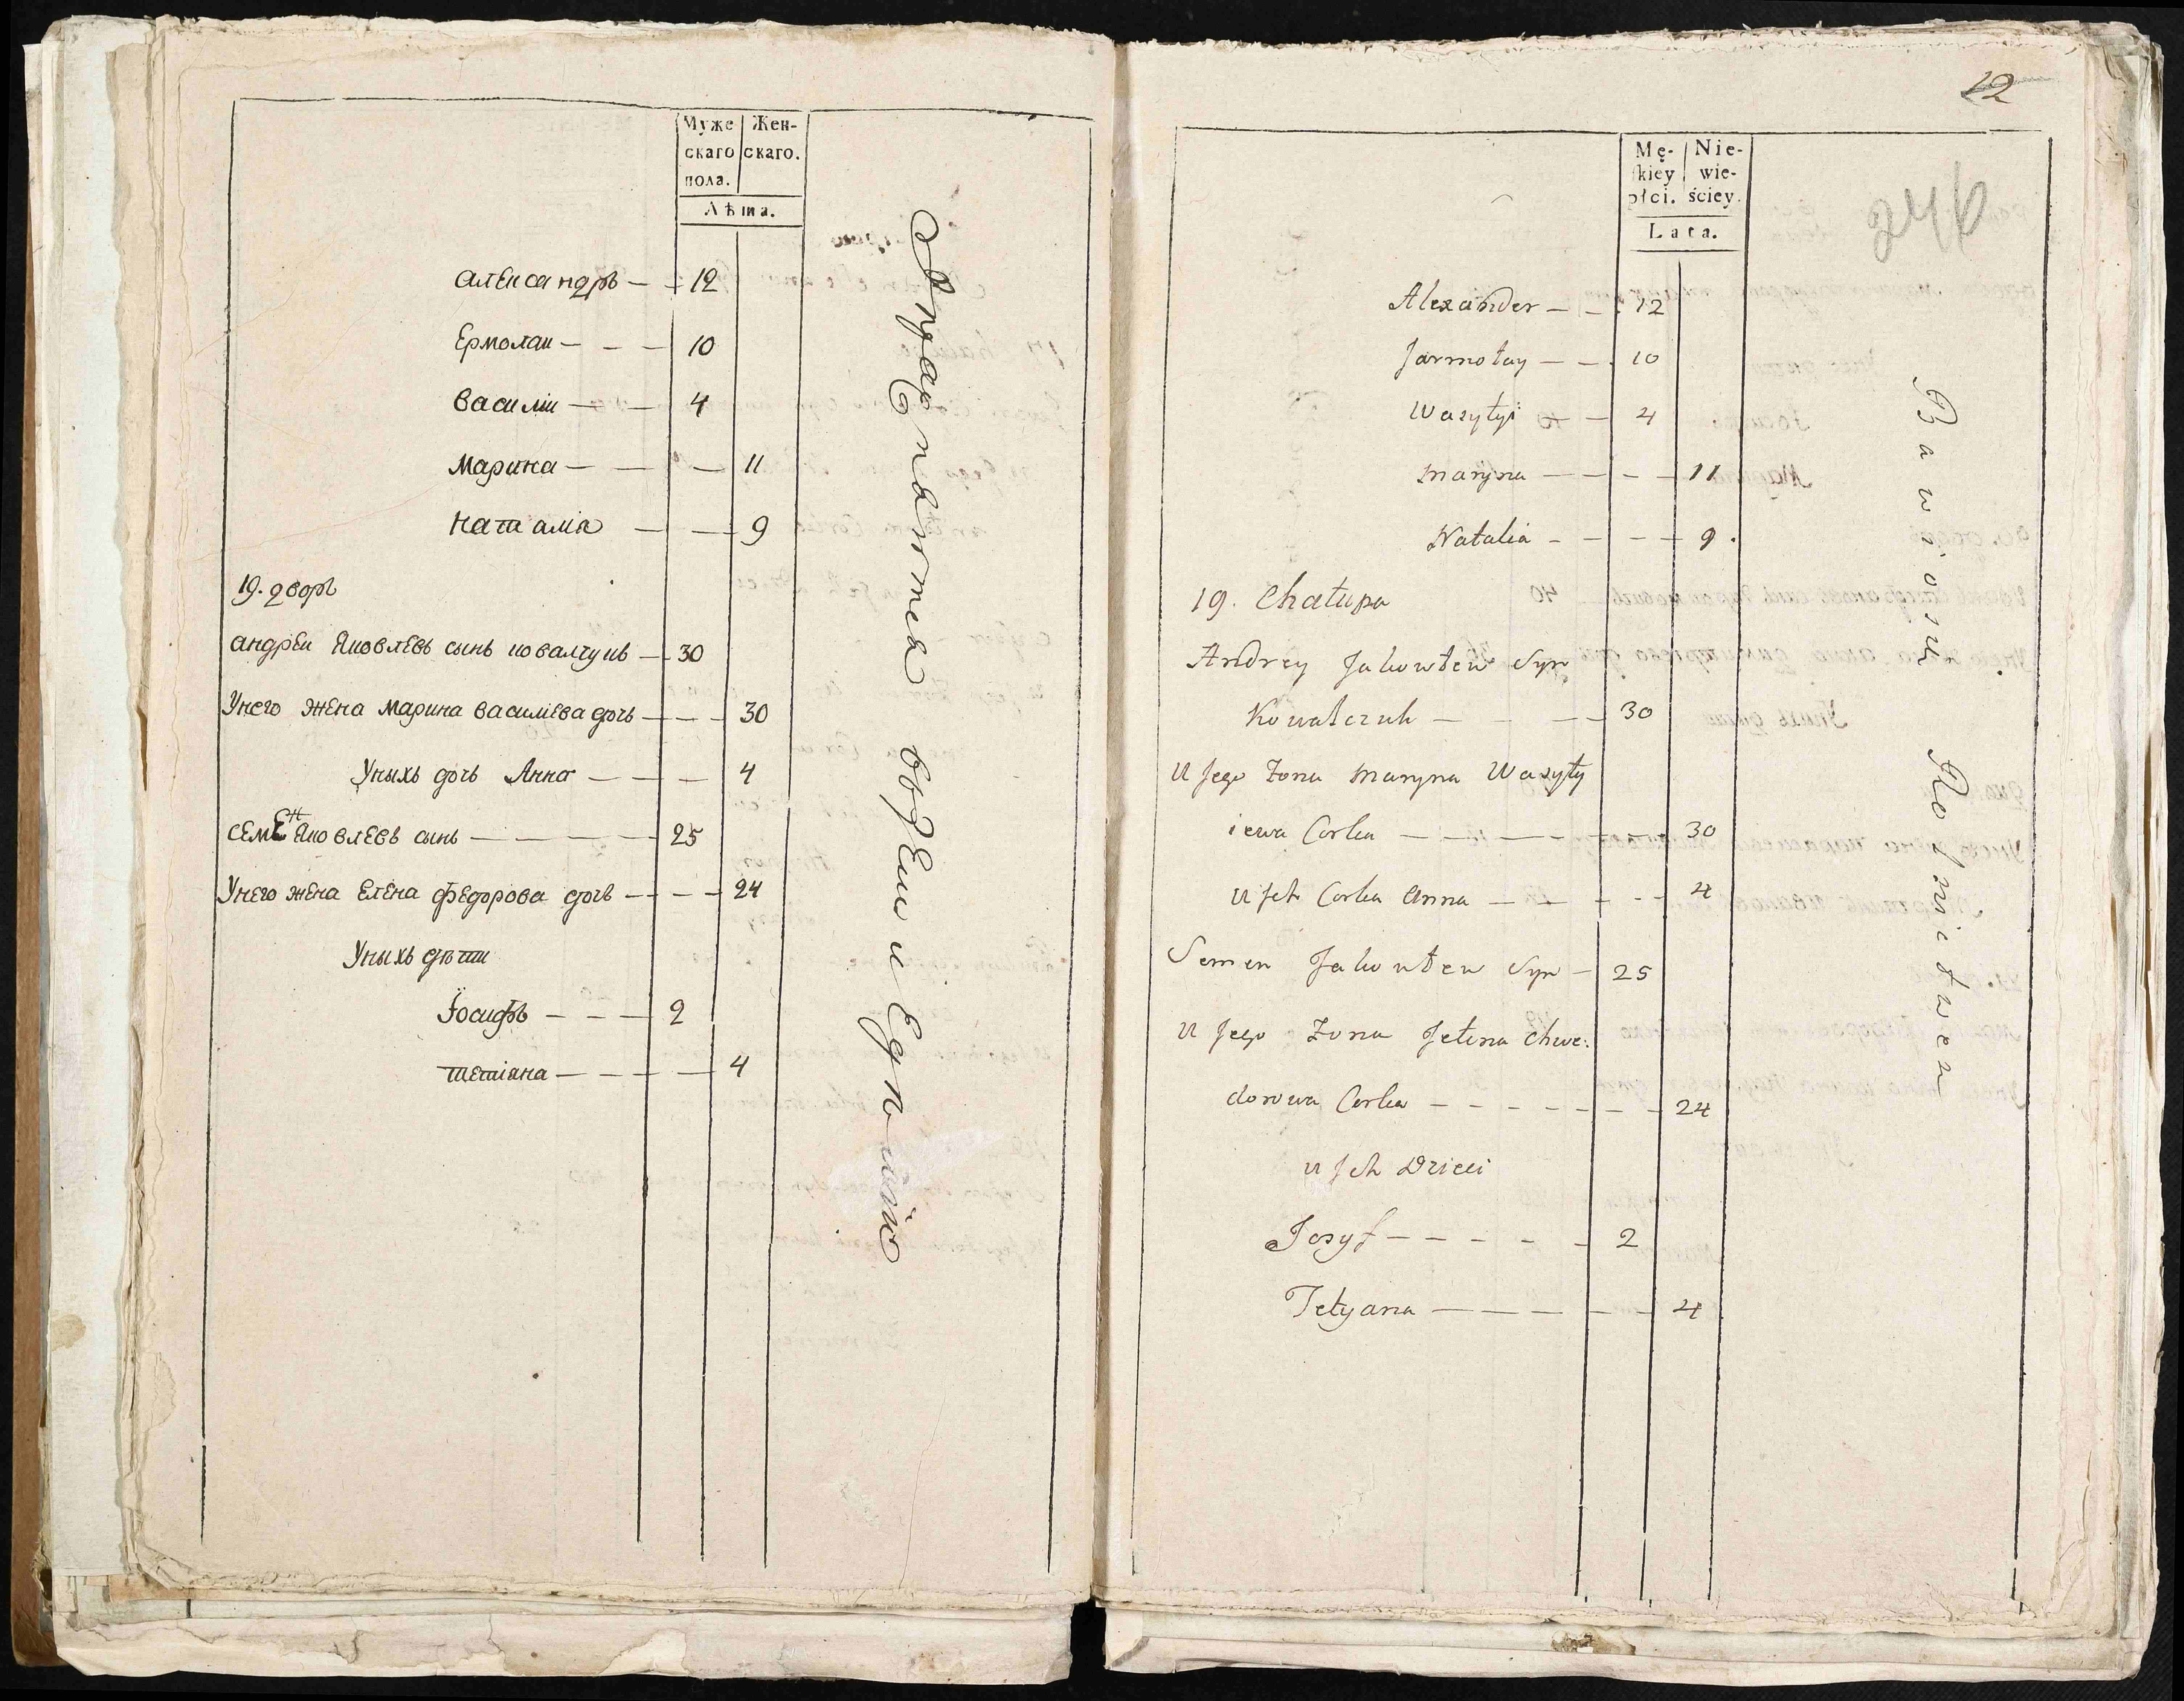 Муже
скаго
пола.
Жен-
скаго.
Лѣта.
александръ — — 12
Ермолаи — — — 10
василіи — — 4
марина — — — 11
наталія — — 9
19. дворъ
андреи яковлевъ сынъ ковалчукъ — 30
Унего жена марина василіева дочь — — — 30
Уныхъ дочь Анна — — — 4
семен яковлевъ сынъ — — — 25
Унего жена елена федорова дочь — — — 24
Уныхъ дѣти
Іосифъ — — — 2
тетіяна — — — — 4
12
246
Mę-
skiey
płci.
Nie-
wie-
ściey.
Lata.
Alexander — — 12
Jarmołay — — 10
Wasyłyi — — 4
Maryna — — — — 11
Natalia — — — — 9.
19. Chałupa
Andrey Jakowłew Syn
Kowalczuk — — — — 30
u Jego Żona Maryna Wasyły
iewa Corka — — — — — 30
u Jch Corka Anna — — — — 4
Semen Jakowłew Syn — 25
u Jego Żona Jełena Chwe:
dorowa Corka — — — — — — — 24
u Jch Dzieci
Josyf — — — — — 2
Tetyana — — — — — 4